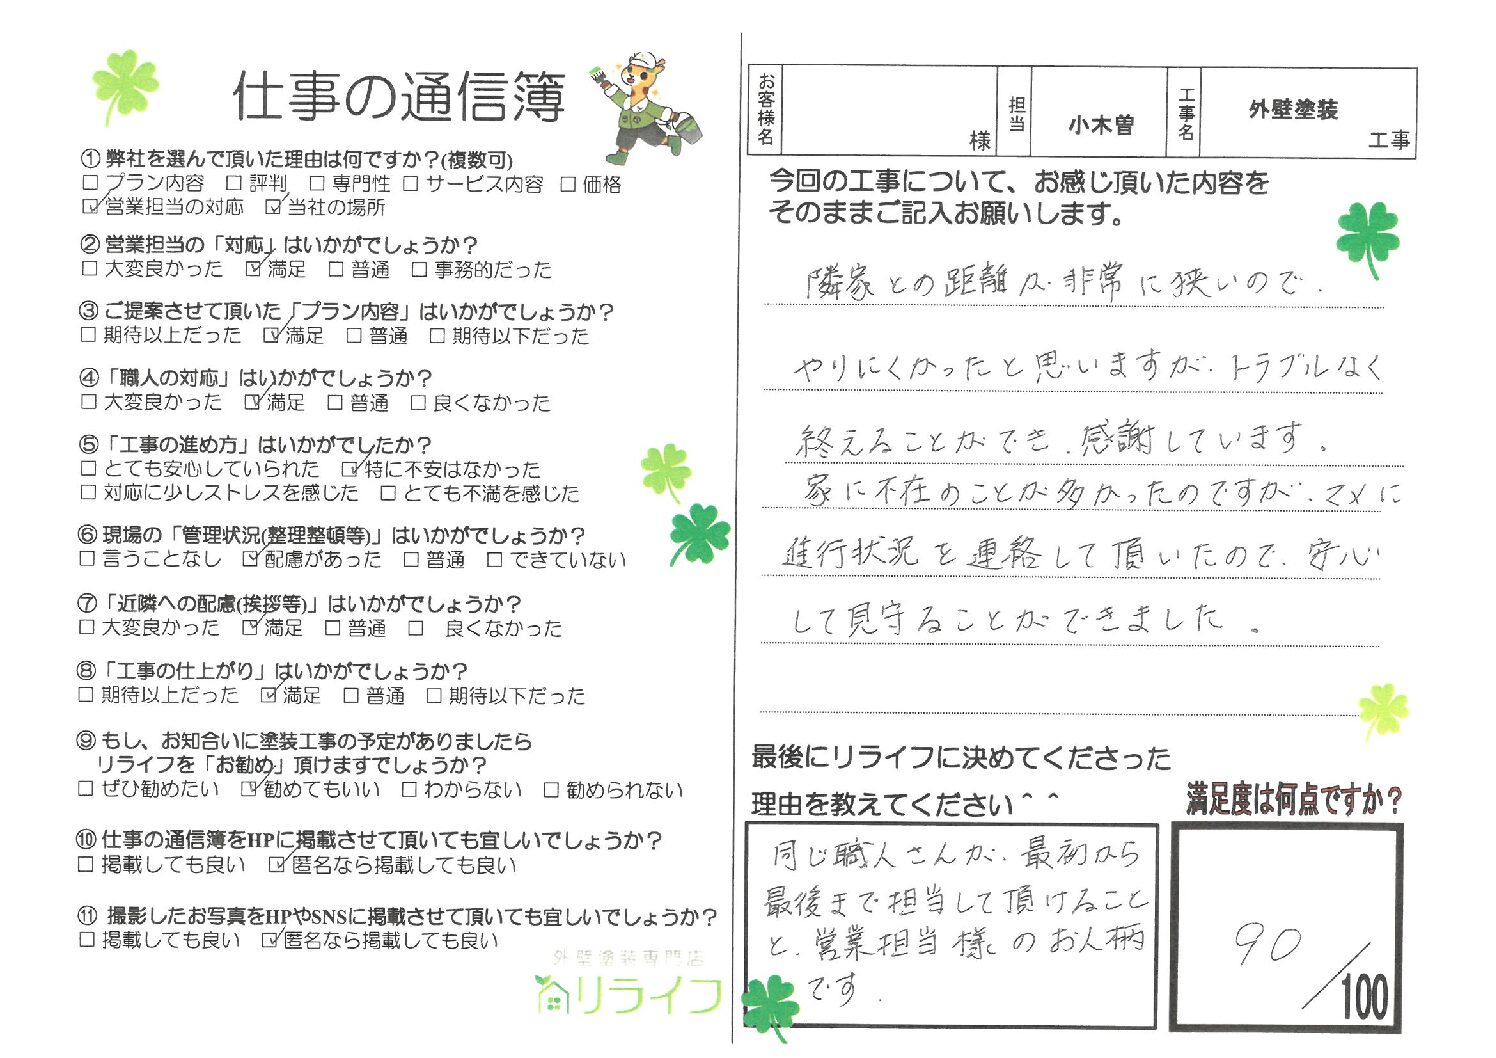 仕事の通信簿
① 弊社を選んで頂いた理由は何ですか?(複数可)
□ プラン内容 □ 評判 □ 専門性 □ サービス内容 □ 価格
☑ 営業担当の対応 ☑ 当社の場所
② 営業担当の「対応」はいかがでしょうか?
□ 大変良かった ☑ 満足 □ 普通 □ 事務的だった
③ ご提案させて頂いた「プラン内容」はいかがでしょうか?
□ 期待以上だった ☑ 満足 □ 普通 □ 期待以下だった
④「職人の対応」はいかがでしょうか?
□ 大変良かった ☑ 満足 □ 普通 □ 良くなかった
⑤「工事の進め方」はいかがでしたか?
□ とても安心していられた ☑ 特に不安はなかった
□ 対応に少しストレスを感じた □ とても不満を感じた
⑥ 現場の「管理状況(整理整頓等)」はいかがでしょうか?
□ 言うことなし ☑ 配慮があった □ 普通 □ できていない
⑦「近隣への配慮(挨拶等)」はいかがでしょうか?
□ 大変良かった ☑ 満足 □ 普通 □ 良くなかった
⑧「工事の仕上がり」はいかがでしょうか?
□ 期待以上だった ☑ 満足 □ 普通 □ 期待以下だった
⑨ もし、お知合いに塗装工事の予定がありましたら
リライフを「お勧め」頂けますでしょうか?
□ ぜひ勧めたい ☑ 勧めてもいい □ わからない □ 勧められない
⑩ 仕事の通信簿をHPに掲載させて頂いても宜しいでしょうか?
□ 掲載しても良い ☑ 匿名なら掲載しても良い
⑪ 撮影したお写真をHPやSNSに掲載させて頂いても宜しいでしょうか?
□ 掲載しても良い ☑ 匿名なら掲載しても良い
外壁塗装専門店
リライフ
お客様名 様 担当 小木曽 工事名 外壁塗装 工事
今回の工事について、お感じ頂いた内容を
そのままご記入お願いします。
隣家との距離が非常に狭いので、
やりにくかったと思いますが、トラブルなく
終えることができ、感謝しています。
家に不在のことが多かったのですが、マメに
進行状況を連絡して頂いたので、安心
して見守ることができました。
最後にリライフに決めてくださった
理由を教えてください＾＾
同じ職人さんが、最初から
最後まで担当して頂けること
と、営業担当様のお人柄
です。
満足度は何点ですか?
90/100